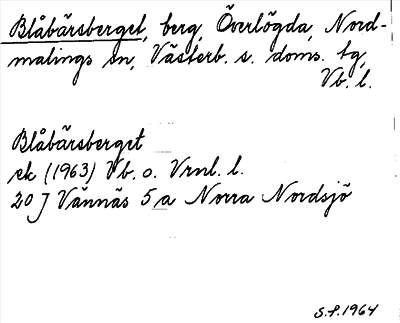 Blåbärsberget, berg, Överlögda, Nord-
malings sn, Västerb. s. doms. tg,
Vb. l.
Blåbärsberget
ek (1963) Vb. o. Vrnl. l.
20 J Vännäs 5 a Norra Nordsjö
S.F. 1964